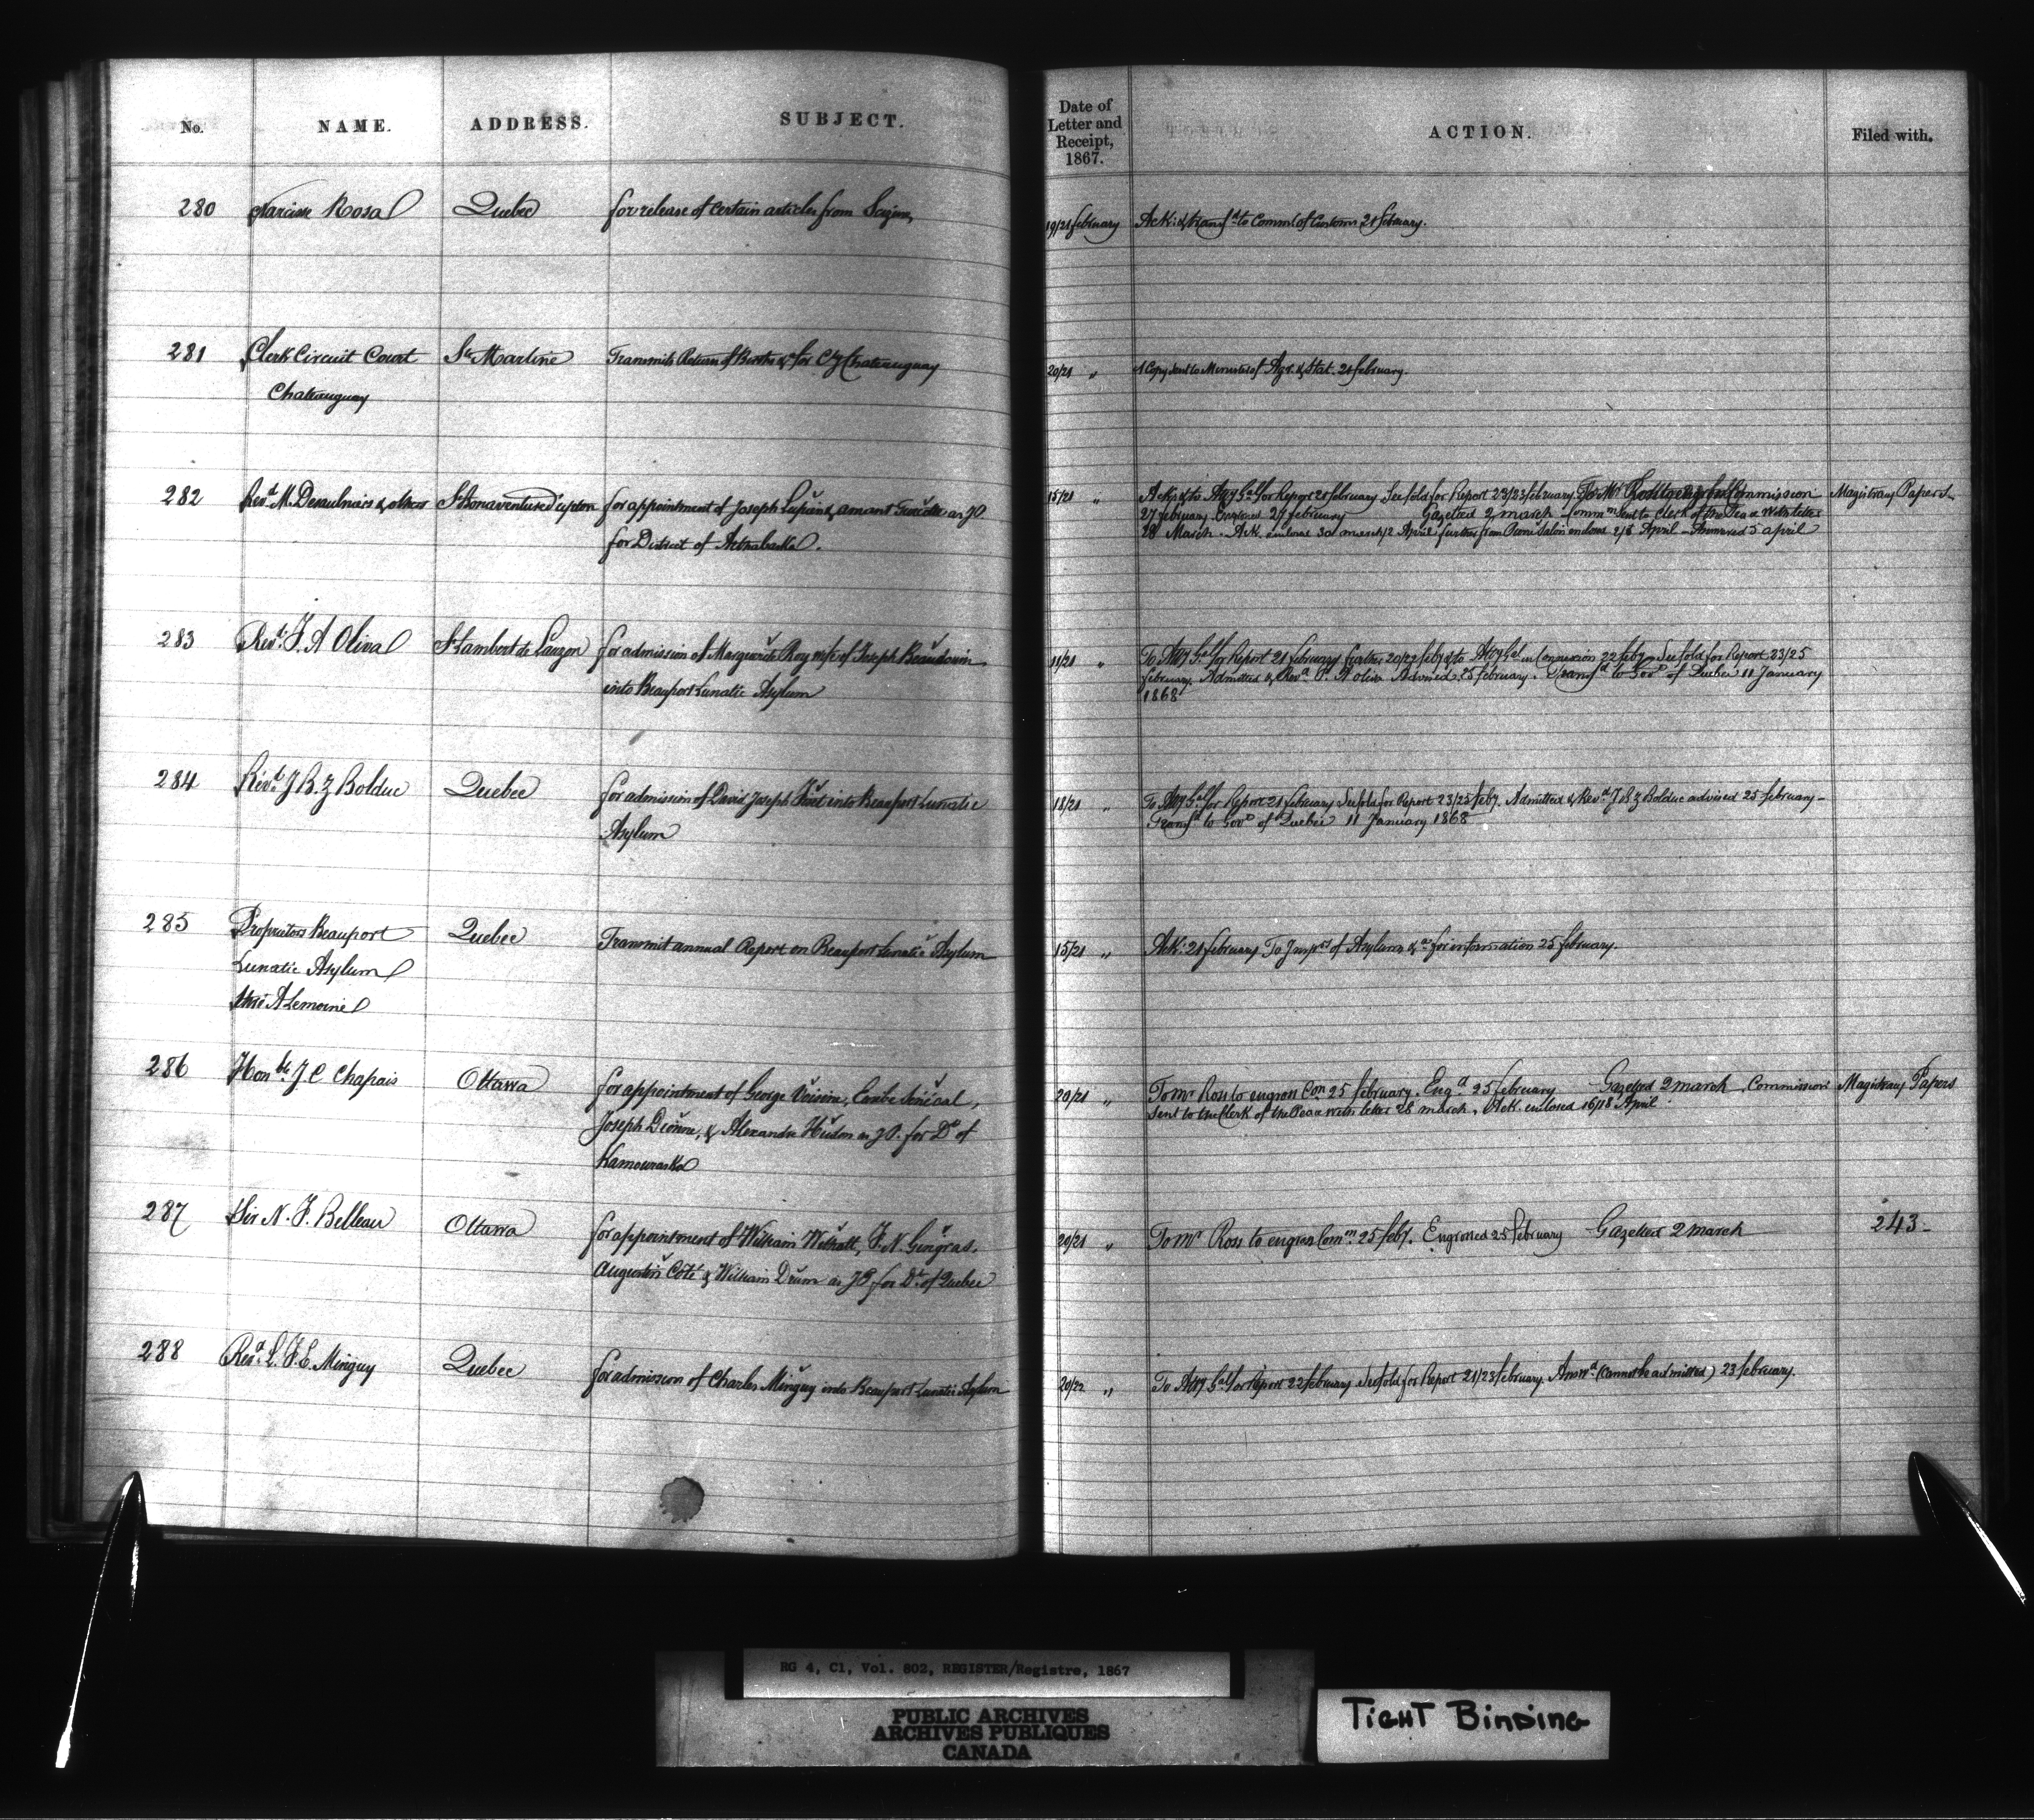 No. NAME. ADDRESS. SUBJECT. Date of Letter and Receipt, 1867. ACTION. Filed with.
280 Narcisse Rosa Quebec for release of certain articles from Seizure 19/21 february Ack: & transf^d to Comm^r of Customs 21 february.
281 Clerk Circuit Court S^te Martine Transmits Return of Births &^c for C^y Chateauguay 20/21 " Copy sent to Minister of Agr. & Stat. 21 february.
Chateauguay
282 Rev^d M. Desaulniers & others S^t Bonaventure d'upton for appointment of Joseph Lupien & as JP. 15/21 " Ack: & to Att^y G^al for Report 21 february See fold for Report 23/23 february To M^r Ross to engross Commission Magistracy Papers
for District of Arthabaska. 27 february Engrossed 27 february Gazetted 2 march Comm^n sent to Clerk of the Peace with letter
28 March. Ack. enclosed 30 march/2 April; further from enclosed 2/3 April Answered 5 april
283 Rev^d F. A Oliva S^t Lambert de Lauzon for admission of Marguerite Roy wife of Joseph Beaudouin 18/21 " To Att^y G^al for Report 21 february further 20/22 feby & to Att^y G^al in Connexion 22 feby See fold for Report 23/25
into Beauport Lunatic Asylum february. Admitted & Rev^d F. A oliva Advised 25 february. Transf^d to Gov^t of Quebec 11 January
1868
284 Rev^d J B. Z Bolduc Quebec for admission of David Joseph into Beauport Lunatic 18/21 " To Att^y G^al for Report 21 february See fold for Report 23/25 feby. Admitted & Rev^d J B Z Bolduc advised 25 february -
Asylum Transf^d to Gov^t of Quebec 11 January 1868
285 Proprietors Beauport Quebec Transmit annual Report on Beauport Lunatic Asylum 15/21 " Ack: 21 february To Insp^rs of Asylums &^c for information 25 february.
Lunatic Asylum
A Lemoine
286 Hon^ble J. C Chapais Ottawa for appointment of George Voisine, Sénécal, 20/21 " To M^r Ross to engross Co^n 25 february. Eng^d 25 february Gazetted 2 march. Commission Magistracy Papers
Joseph Dionne, & Alexandre Hudon as JP. for D^t of sent to the Clerk of the Peace with letter 28 march. Ack. enclosed 16/18 April.
Kamouraska
287 Sir N. F. Belleau Ottawa for appointment of William Withall, F. N. Gingras. 20/21 " To M^r Ross to engross Com^n 25 feby. Engrossed 25 february Gazetted 2 march 243-
Augustin Côté & William Drum as JP for D^t of Quebec
288 Rev^d L. F. E. Minguy Quebec for admission of Charles Minguy into Beauport Lunatic Asylum 20/22 " To Att^y G^al for Report 22 february See fold for Report 21/23 february. Answ^d (cannot be admitted) 23 february.
RG 4, C1, Vol. 802, REGISTER/Registre, 1867
PUBLIC ARCHIVES
ARCHIVES PUBLIQUES
CANADA
TIGHT BINDING